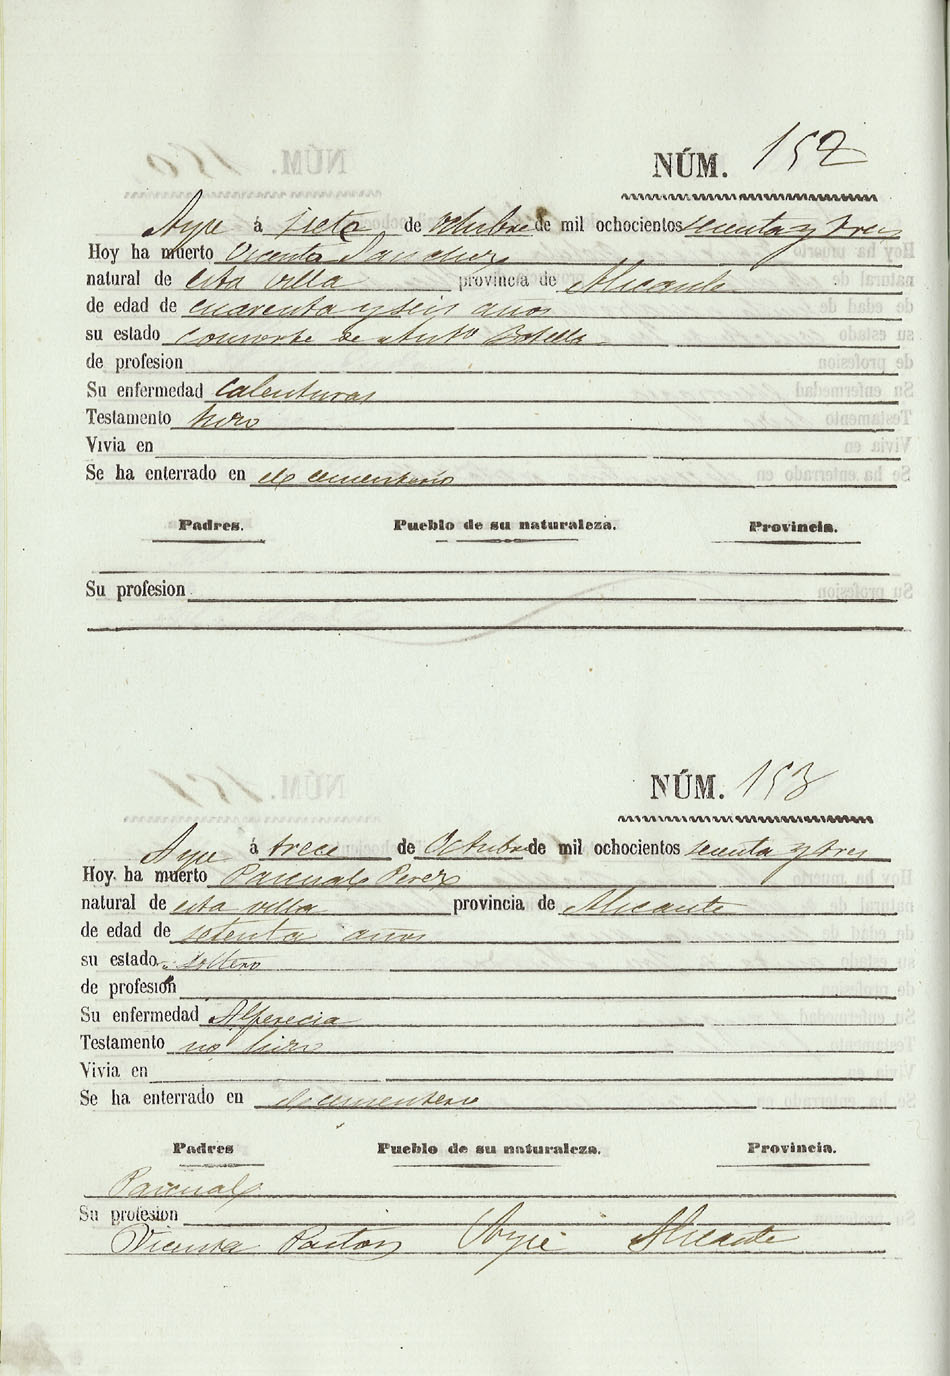 NÚM. 152
Aspe á siete de octubre de mil ochocientos sesenta y tres
Hoy ha muerto Vicenta Sanchez
natural de esta villa provincia de Alicante
de edad de cuarenta y seis años
su estado consorte de Anto Botella
de profesion
Su enfermedad Calenturas
Testamento hizo
Vivia en
Se ha enterrado en el cementerio
Padres. Pueblo de su naturaleza. Provincia.
Su profesion
NÚM. 153
Aspe á trece de Octubre de mil ochocientos sesenta y tres
Hoy ha muerto Pascual Perez
natural de esta villa provincia de Alicante
de edad de setenta años
su estado soltero
de profesion
Su enfermedad Alferecia
Testamento no hizo
Vivia en
Se ha enterrado en el cementerio
Padres Pueblo de su naturaleza. Provincia.
Pascual
Su profesion
Vicenta Pastor Aspe Alicante